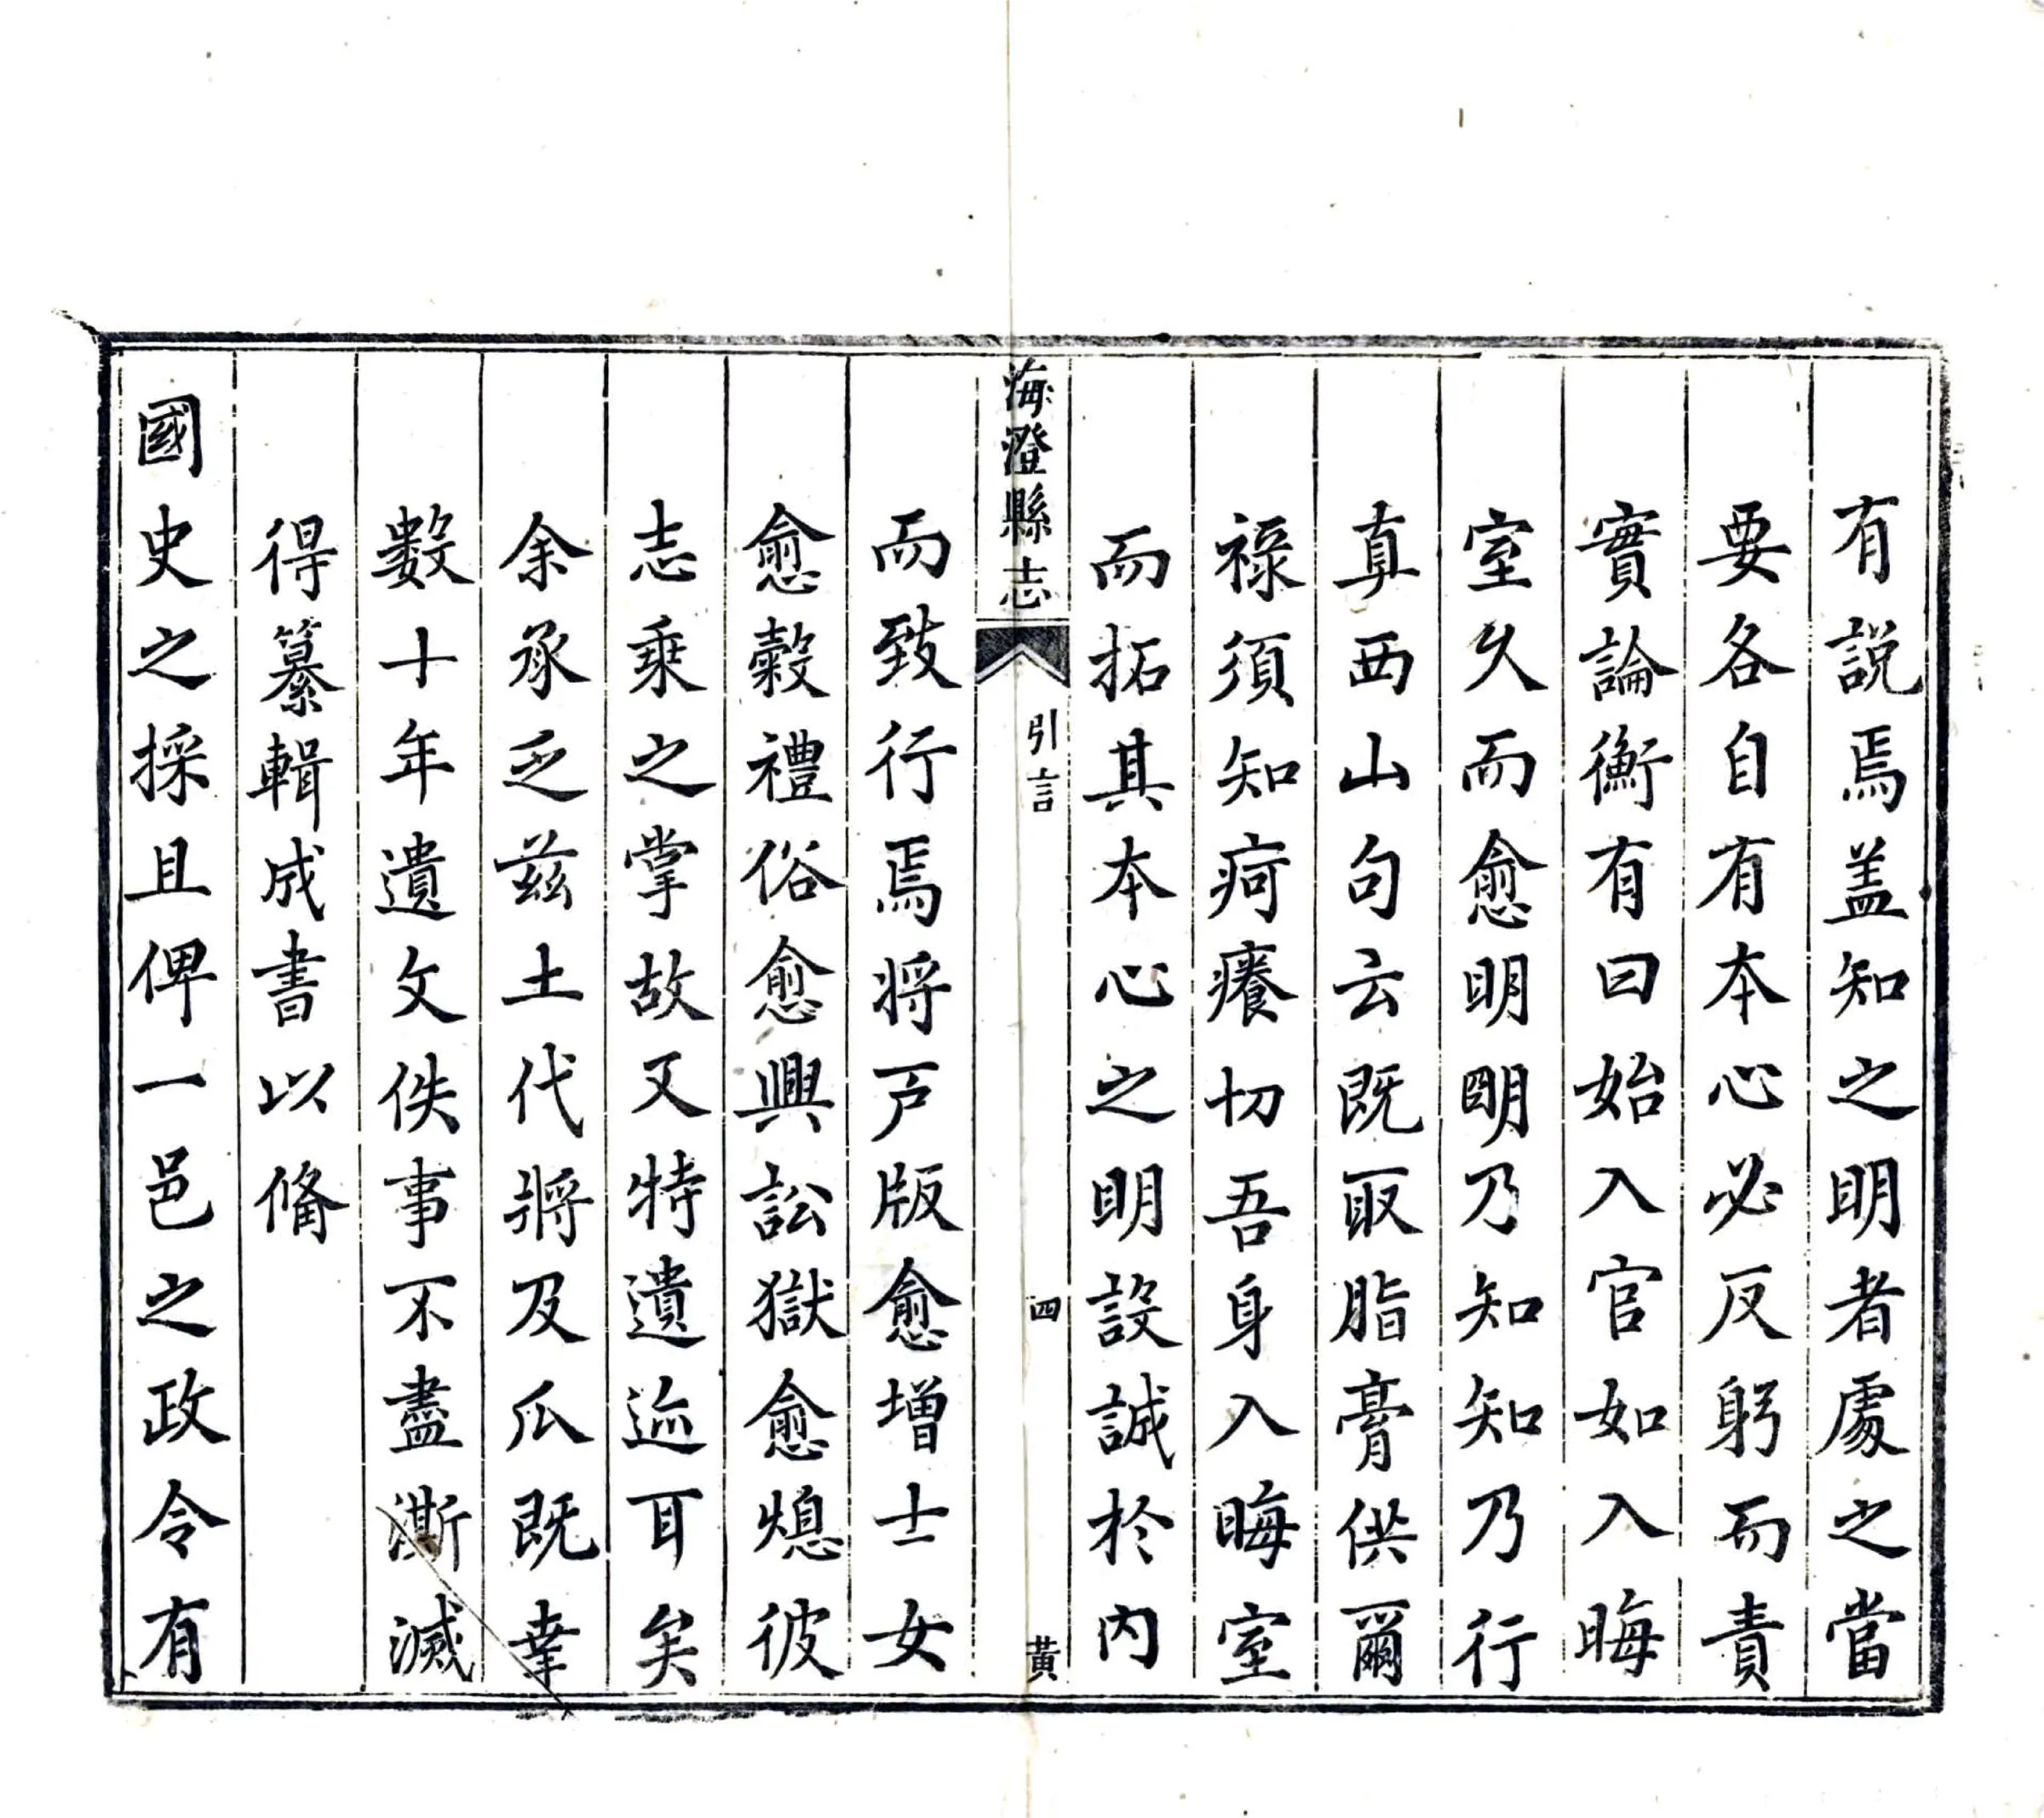 有説焉盖知之明者處之當
要各自有本心必反躬而責
實論衡有曰始入官如入晦
室久而愈明明乃知知乃行
真西山句云既取脂膏供爾
祿須知疴癢切吾身入晦室
而拓其本心之明設誠於内
海澄縣志
引言
四
黃
而致行焉將戸版愈增士女
愈穀禮俗愈興訟獄愈熄彼
志乘之掌故又特遺迹耳矣
余承乏兹土代將及瓜既幸
數十年遺文佚事不盡澌滅
得纂輯成書以俻
國史之採且俾一邑之政令有